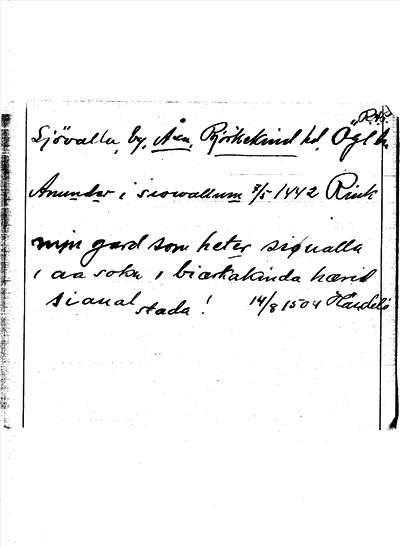 Sjövalla, by, Åsn, Björkekind hd, Ögl
Anundær i siowallum 3/5 1442 Rink
mijn gard som heter siøualla
i aa sokn i biærkakinda hærid
sianalstada! 14/8 1504 Händelö